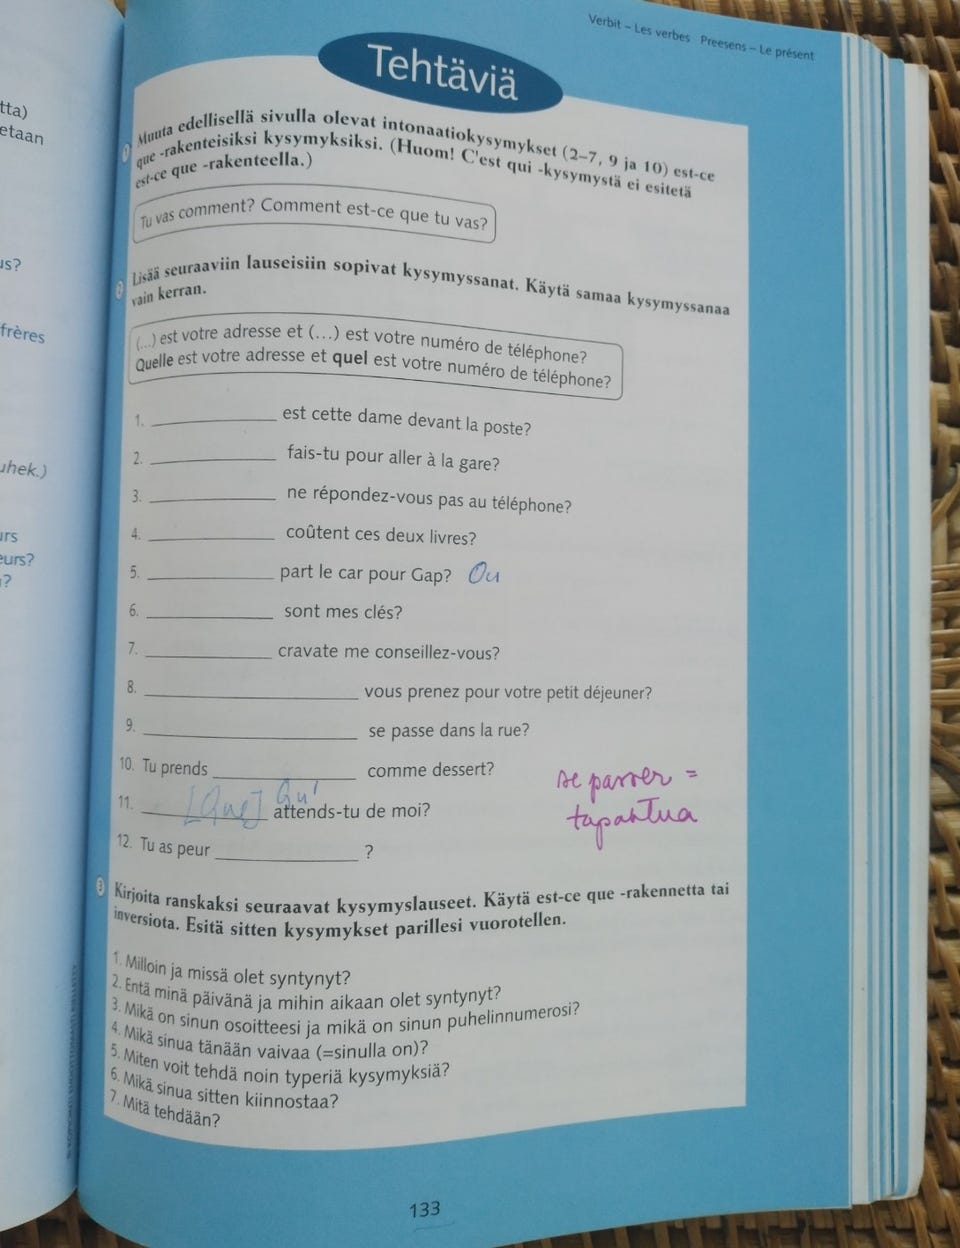 tta)
etaan
us?
frères
uhek.)
urs
eurs?
?
Verbit – Les verbes Preesens – Le présent
Tehtäviä
1 Muuta edellisellä sivulla olevat intonaatiokysymykset (2–7, 9 ja 10) est-ce
que -rakenteisiksi kysymyksiksi. (Huom! C'est qui -kysymystä ei esitetä
est-ce que -rakenteella.)
Tu vas comment? Comment est-ce que tu vas?
2 Lisää seuraaviin lauseisiin sopivat kysymyssanat. Käytä samaa kysymyssanaa
vain kerran.
(...) est votre adresse et (...) est votre numéro de téléphone?
Quelle est votre adresse et quel est votre numéro de téléphone?
1. ____________ est cette dame devant la poste?
2. ____________ fais-tu pour aller à la gare?
3. ____________ ne répondez-vous pas au téléphone?
4. ____________ coûtent ces deux livres?
5. ____________ part le car pour Gap? Ou
6. ____________ sont mes clés?
7. ____________ cravate me conseillez-vous?
8. ____________ vous prenez pour votre petit déjeuner?
9. ____________ se passe dans la rue?
10. Tu prends ____________ comme dessert?
se passer =
tapahtua
11. [Que] Qu' attends-tu de moi?
12. Tu as peur ____________ ?
3 Kirjoita ranskaksi seuraavat kysymyslauseet. Käytä est-ce que -rakennetta tai
inversiota. Esitä sitten kysymykset parillesi vuorotellen.
1. Milloin ja missä olet syntynyt?
2. Entä minä päivänä ja mihin aikaan olet syntynyt?
3. Mikä on sinun osoitteesi ja mikä on sinun puhelinnumerosi?
4. Mikä sinua tänään vaivaa (=sinulla on)?
5. Miten voit tehdä noin typeriä kysymyksiä?
6. Mikä sinua sitten kiinnostaa?
7. Mitä tehdään?
133